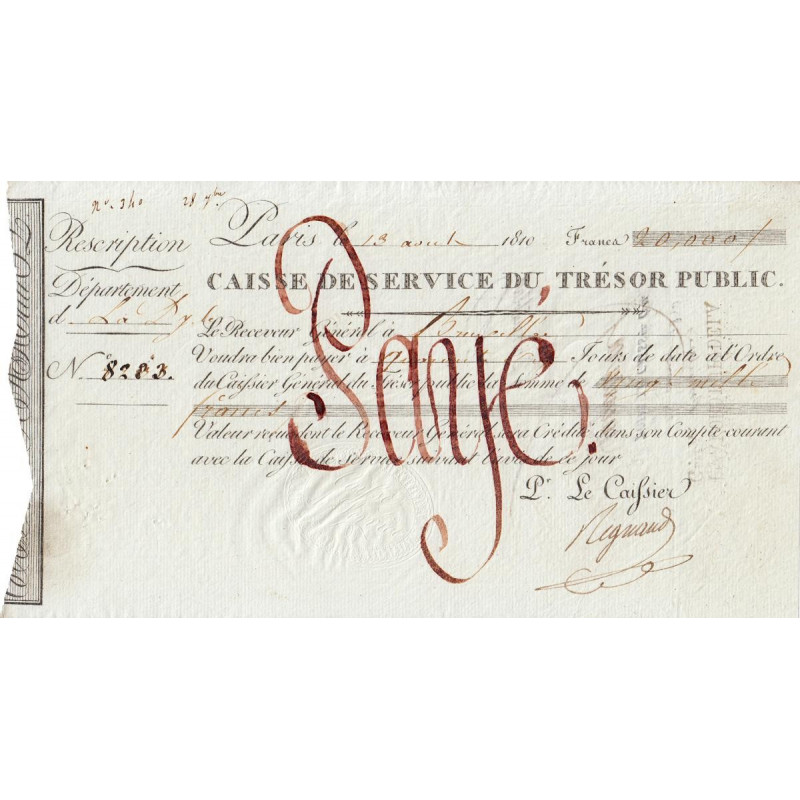 Nº. 340 28 7bre
Rescription
Département
d La Dyle
Nº 8283.
Paris le 13 août 1810 Francs 20,000/
CAISSE DE SERVICE DU TRÉSOR PUBLIC.
Le Receveur Général à Bruxelles
Voudra bien payer à Jours de date à l'Ordre
du Caissier Général du Trésor public la Somme de vingt mille
francs
Valeur reçue dont le Receveur Général sera Crédité dans son Compte courant
avec la Caisse de Service suivant l'avis de ce jour
Pr. Le Caissier
Regnaud
Payé.